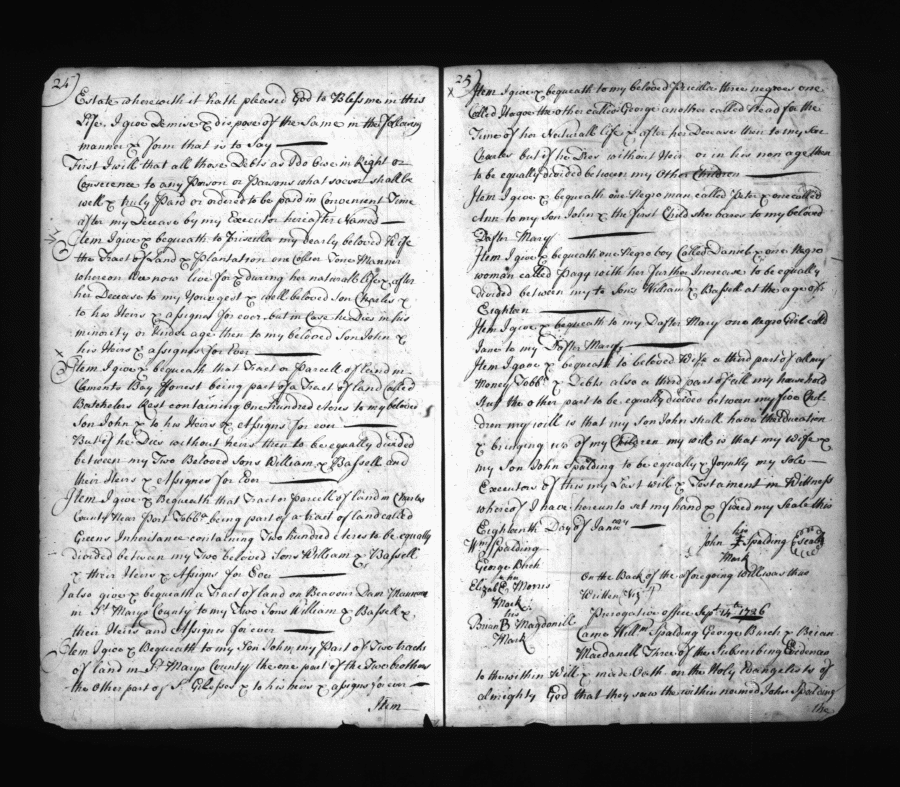 24
Estate wherewith it hath pleased God to Bless me in this
Life, I give Demise & dispose of the Same in the following
manner & form that is to Say
First I will that all those Debts as I do owe in Right or
Conscience to any Person or Persons what soever shall be
well & truly Paid or ordered to be paid in Convenient Time
after my Decease by my Executor hereafter Named
Item I give & bequeath to Priscilla my dearly beloved Wife
the Tract of Land & Plantation one Manner
whereon We now live for & during her naturall life & after
her Decease to my Youngest & well beloved Son Charles &
to his Heirs & assigns for ever but in Case he Dies in his
minority or Under age then to my beloved Son John &
his Heirs & assigns for Ever
Item I give & bequeath that Tract or Parcell of land in
Clements Bay forrest being part of a Tract of land called
Batchelers Rest containing One hundred Acres to my beloved
Son John & to his Heirs & Assigns for ever
But if he Dies without heirs then to be equally divided
between my Two Beloved Sons William & Bassell and
their Heirs & Assignes for Ever
Item I give & Bequeath that Tract or Parcell of land in Charles
County Near Port Tobba. being part of a tract of land called
Greens Inheritance containing Two hundred Acres to be equally
divided between my Two beloved Sons William & Bassell
& their Heirs & Assigns for Ever
I also give & bequeath a Tract of land on Beavour Dam Mannour
in St. Marys County to my Two Sons William & Bassell &
their Heirs and Assignes for ever
Item I give & Bequeath to my Son John my Part of Two tracts
of land in St. Marys County the one part of the Two brothers
the Other part of St. & to his heirs & assigns for ever
Item
25
Item I give & bequeath to my beloved Priscilla three negroes one
called Hagoe the other called George another called Head for the
Time of her Naturall life & after her Decease then to my Son
Charles but if he Dies without Heir or in his non age then
to be equally divided between my Other Children
Item I give & bequeath one Negro man called Pete & one called
Ann to my Son John & the first Child she bares to my beloved
Dafter Mary
Item I give & bequeath one Negro boy Called Daniel & one Negro
woman called Pagg with her further Increase to be equally
divided between my to Sons William & Bassell at the age of
Eighteen
Item I give & bequeath to my Dafter Mary one Negro Girl called
Jane to my Dafter Mary
Item I gave & bequeath to beloved Wife a third part of all my
Money Tobbo. & Debts also a third part of all my household
the other part to be equally divided between my five Chil-
dren my will is that my Son John shall have the Education
& bringing up of my Children my will is that my Wife &
my Son John Spalding to be equally & Joyntly my Sole
Executors of this my Last will & Testament in Wittness
whereof I have hereunto set my hand & fixed my Seale this
Eighteenth Day of Janary
Wm Spalding
John his Mark Spalding Seale
George Birch
Elizab. E her Mark Morris
On the Back of the aforegoing Will was thus
Written Viz.t
Brian B his Mark Magdonill
Perrogative office Sept. 14.th 1736
Came Will.m Spalding George Birch & Brian
Macdanell Three of the Subscribing Evidences
to the within Will & made Oath on the Holy Evangelists of
Almighty God that they saw the within named John Spalding
the